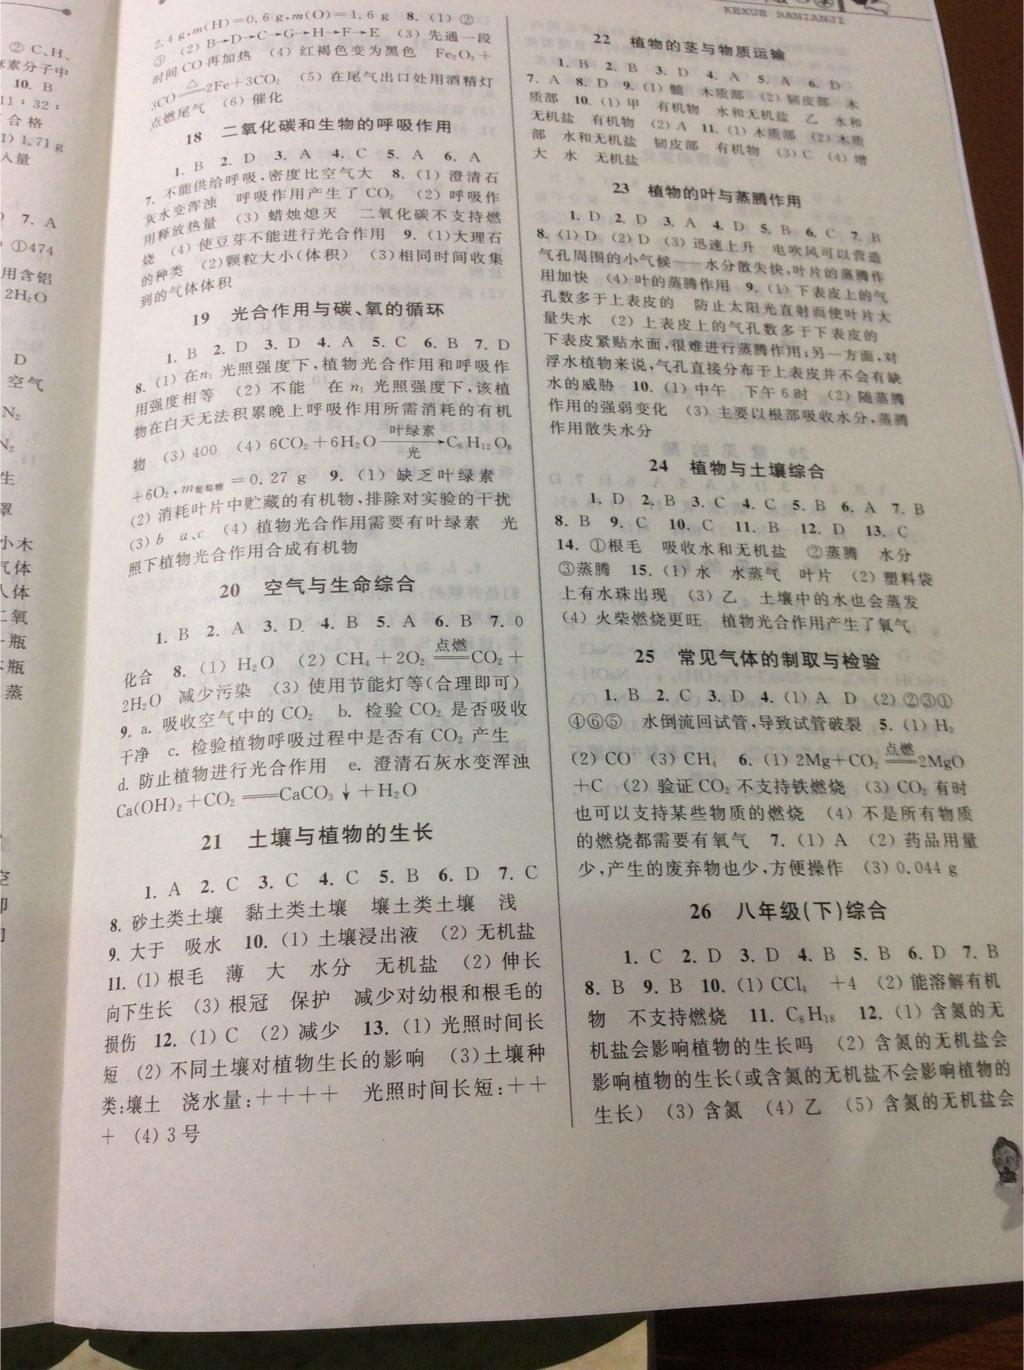 KEXUE BANIANJI
② C、H、
尿素分子中
10. B
11∶32∶
合格
1.71 g
入量
7. A
①474
用含铝
2H₂O
D
空气
N₂
N₂
生
罩
小木
气体
人体
二氧
一瓶
瓶
蒸
2.4 g,m(H)=0.6 g,m(O)=1.6 g 8. (1) ②
③ (2) B→D→C→G→H→F→E (3) 先通一段
时间 CO 再加热 (4) 红褐色变为黑色 Fe₂O₃+
3CO══△══2Fe+3CO₂ (5) 在尾气出口处用酒精灯
点燃尾气 (6) 催化
18 二氧化碳和生物的呼吸作用
1. B 2. D 3. A 4. C 5. A 6. A
7. 不能供给呼吸,密度比空气大 8. (1) 澄清石
灰水变浑浊 呼吸作用产生了 CO₂ (2) 呼吸作
用释放热量 (3) 蜡烛熄灭 二氧化碳不支持燃
烧 (4) 使豆芽不能进行光合作用 9. (1)大理石
的种类 (2)颗粒大小(体积) (3)相同时间收集
到的气体体积
19 光合作用与碳、氧的循环
1. B 2. D 3. D 4. A 5. C 6. B 7. D
8. (1) 在 n₁ 光照强度下,植物光合作用和呼吸作
用强度相等 (2) 不能 在 n₁ 光照强度下,该植
物在白天无法积累晚上呼吸作用所需消耗的有机
物 (3) 400 (4) 6CO₂+6H₂O──叶绿素/光──→C₆H₁₂O₆
+6O₂,m葡萄糖=0.27 g 9. (1) 缺乏叶绿素
(2) 消耗叶片中贮藏的有机物,排除对实验的干扰
(3) b a、c (4) 植物光合作用需要有叶绿素 光
照下植物光合作用合成有机物
20 空气与生命综合
1. B 2. A 3. D 4. B 5. A 6. B 7. 0
化合 8. (1) H₂O (2) CH₄+2O₂══点燃══CO₂+
2H₂O 减少污染 (3) 使用节能灯等(合理即可)
9. a. 吸收空气中的 CO₂ b. 检验 CO₂ 是否吸收
干净 c. 检验植物呼吸过程中是否有 CO₂ 产生
d. 防止植物进行光合作用 e. 澄清石灰水变浑浊
Ca(OH)₂+CO₂══CaCO₃↓+H₂O
21 土壤与植物的生长
1. A 2. C 3. C 4. C 5. B 6. D 7. C
8. 砂土类土壤 黏土类土壤 壤土类土壤 浅
9. 大于 吸水 10. (1) 土壤浸出液 (2) 无机盐
11. (1) 根毛 薄 大 水分 无机盐 (2) 伸长
向下生长 (3) 根冠 保护 减少对幼根和根毛的
损伤 12. (1) C (2) 减少 13. (1) 光照时间长
短 (2) 不同土壤对植物生长的影响 (3)土壤种
类:壤土 浇水量:＋＋＋＋ 光照时间长短:＋＋
＋ (4) 3 号
22 植物的茎与物质运输
1. B 2. B 3. D 4. A 5. A 6. D
7. A 8. D 9. (1) 髓 木质部 (2) 韧皮部 木
质部 10. (1) 甲 有机物 水和无机盐 乙 水和
无机盐 有机物 (2) A 11. (1) 木质部 (2) 木质
部 水和无机盐 韧皮部 有机物 (3) C (4) 增
大 水 无机盐
23 植物的叶与蒸腾作用
1. D 2. D 3. A 4. D 5. B 6. C 7. B
8. (1) D (2) D (3) 迅速上升 电吹风可以营造
气孔周围的小气候——水分散失快,叶片的蒸腾作
用加快 (4) 叶的蒸腾作用 9. (1) 下表皮上的气
孔数多于上表皮的 防止太阳光直射而使叶片大
量失水 (2) 上表皮上的气孔数多于下表皮的
下表皮紧贴水面,很难进行蒸腾作用;另一方面,对
浮水植物来说,气孔直接分布于上表皮并不会有缺
水的威胁 10. (1) 中午 下午 6 时 (2) 随蒸腾
作用的强弱变化 (3) 主要以根部吸收水分,蒸腾
作用散失水分
24 植物与土壤综合
1. D 2. B 3. C 4. C 5. B 6. A 7. B
8. B 9. C 10. C 11. B 12. D 13. C
14. ①根毛 吸收水和无机盐 ②蒸腾 水分
③蒸腾 15. (1) 水 水蒸气 叶片 (2) 塑料袋
上有水珠出现 (3) 乙 土壤中的水也会蒸发
(4) 火柴燃烧更旺 植物光合作用产生了氧气
25 常见气体的制取与检验
1. B 2. C 3. D 4. (1) A D (2) ②③①
④⑥⑤ 水倒流回试管,导致试管破裂 5. (1) H₂
(2) CO (3) CH₄ 6. (1) 2Mg+CO₂══点燃══2MgO
+C (2) 验证 CO₂ 不支持铁燃烧 (3) CO₂ 有时
也可以支持某些物质的燃烧 (4) 不是所有物质
的燃烧都需要有氧气 7. (1) A (2) 药品用量
少,产生的废弃物也少,方便操作 (3) 0.044 g
26 八年级(下)综合
1. C 2. D 3. D 4. B 5. B 6. D 7. B
8. B 9. B 10. (1) CCl₄ +4 (2) 能溶解有机
物 不支持燃烧 11. C₈H₁₈ 12. (1) 含氮的无
机盐会影响植物的生长吗 (2) 含氮的无机盐会
影响植物的生长(或含氮的无机盐不会影响植物的
生长) (3) 含氮 (4) 乙 (5) 含氮的无机盐会